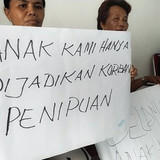 ANAK KAMI HANYA
DIJADIKAN KORBAN
PENIPUAN
ANAK